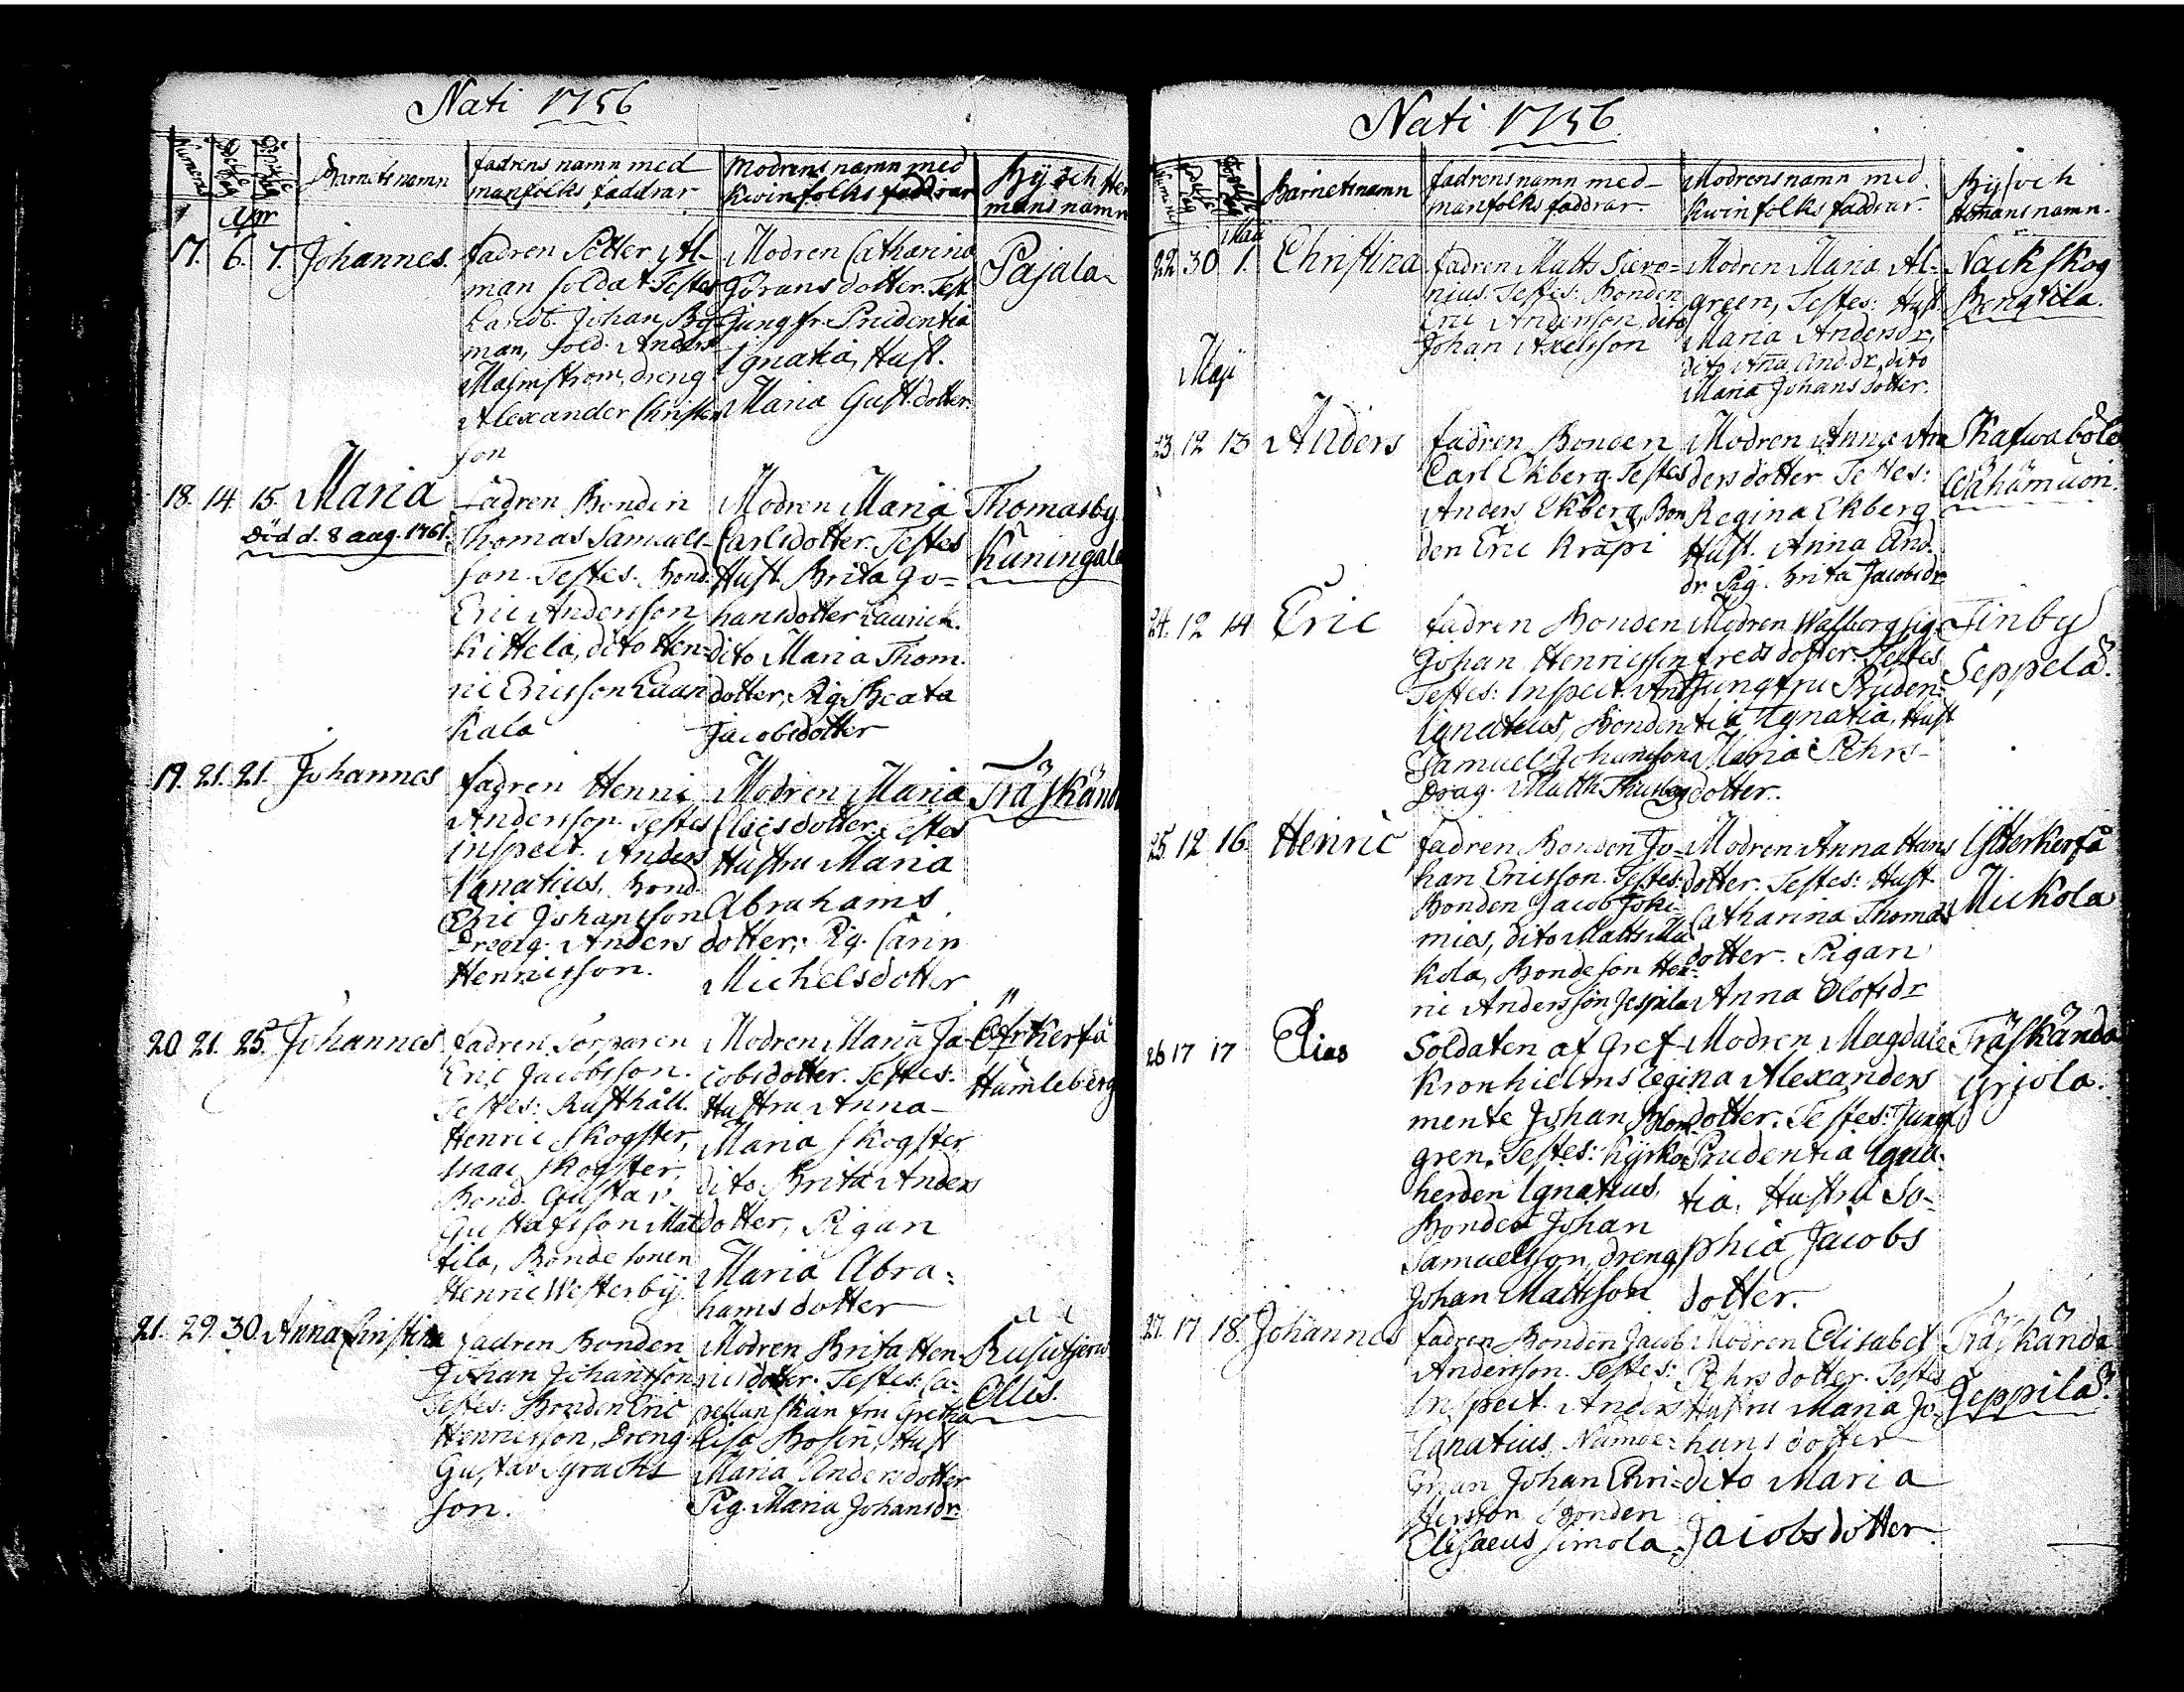 Nati 1756
Barnets namn
fadrens namn med
manfolks faddrar
Modrens namn med
Kwinfolks faddrar
Bÿ och He
mans namn
Apr
17. 6. 7. Johannes.
fadren Petter Al-
man soldat. Testes
Johan By
man, sold. Anders
Malmstrom, dreng
Alexander Christer
son
Modren Catharina
Göransdotter. Test.
Jungfr. Prudentia
Ignatia, Hust.
Maria Gust.dotter.
Pajala
18. 14. 15. Maria
Död d. 8 aug. 1761.
fadren Bonden
Thomas Samuels-
son. Testes. Bond.
Eric Andersson
Kittela, dito Hen-
ric Ericsson Laur
kala
Modren Maria
Carlsdotter. Testes
Hust. Brita Jo-
hansdotter Laurick.
dito Maria Thom.
dotter, Pig. Beata
Jacobsdotter
Thomasby
Kuningala
19. 21. 21. Johannes
fadren Henric
Andersson. Testes
Inspect. Anders
Ignatius, Bond.
Eric Johansson
Dreng. Anders
Henricsson.
Modren Maria
Claesdotter. Testes
Hustru Maria
Abrahams
dotter, Pig. Carin
Michelsdotter
Träskända
20. 21. 25. Johannes
fadren Torparen
Eric Jacobsson.
Testes: Rusthåll.
Henric Skogster,
Isaac Skogster,
Bond. Gustav
Gustafsson Mat
tila, Bonde sonen
Henric Westerbÿ.
Modren Maria Ja
cobsdotter. Testes.
Hustru Anna
Maria Skogster
dito Brita Anders
dotter, Pigan
Maria Abra-
hams dotter
Öfrkerfå
Humleberg
21. 29. 30. Anna Christina
fadren Bonden
Johan Johansson
Testes: Bonden Eric
Henricsson, Dreng
Gustav
son.
Modren Brita Hen-
ricsdotter. Testes: Ca-
pellanskan fru Gretha
Lisa Bosin, Hust
Maria Andersdotter
Pig. Maria Johansdr.
Ollis.
Nati 1756.
Barnets namn
fadrens namn med
manfolks faddrar.
Modrens namn med
Kwinfolks faddrar.
Bÿ och
Hemans namn.
Maji
22. 30 1. Christina
fadren Matts Siero-
nius. Testes: Bonden
Eric Andersson, dito
Johan Axelsson
Modren Maria Al-
green, Testes: Hust
Maria Andersdr,
dito Anna And.dr, dito
Maria Johans dotter.
Nackskog
Bengtila.
Maji
23 12 13 Anders
fadren Bonden
Carl Ekberg. Testes
Anders Ekberg, Bon
den Eric Krapi
Modren Anna An
dersdotter. Testes:
Regina Ekberg
Hust. Anna And.
dr. Pig. Brita Jacobsdr.
Skafwaböle
24. 12 14 Eric
fadren Bonden
Johan Henricsson
Testes: Inspect. And
Ignatius, Bonden
Samuel Johansson
Drag. Matth
Modren Walborg Sig-
freds dotter. Testes
Jungfru Pruden-
tia Ignatia, Hust
Maria Pehrs-
dotter.
Finby
Seppelä.
25. 12 16. Henric
fadren Bonden Jo-
han Ericsson. Testes:
Bonden Jacob Joki-
mies, dito Matts Mic
kola, Bondeson Hen-
ric Andersson Jeppila
Modren Anna Hans
dotter. Testes: Hust.
Catharina Thomas
dotter. Pigan
Anna Olofsdr
Ÿtterkerfå
Mickola
26 17 17 Elias
Soldaten af Gref
Kronhielms Regi
mente Johan Blom
gren. Testes: Kyrko
herden Ignatius,
Bonden Johan
Samuelsson, dreng
Johan Mattsson
Modren Magdale
na Alexanders
dotter. Testes: Jungf
Prudentia Igna-
tia, Hustru So-
phia Jacobs
dotter.
Träskända
Grjola.
27. 17 18. Johannes
fadren Bonden Jacob
Andersson. Testes:
Inspect. Anders
Ignatius, Nämde-
man Johan Chri-
sterson Bonden
Elisaeus Simola
Modren Elisabet
Pehrs dotter. Testes
Hustru Maria Jo-
hans dotter
dito Maria
Jacobsdotter.
Träskända
Jeppilä.